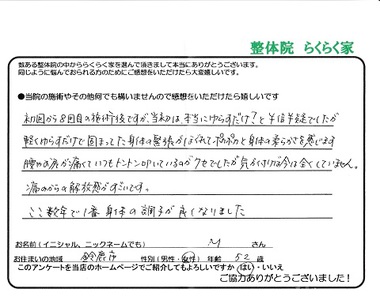 整体院 らくらく家
数ある整体院の中かららくらく家を選んで頂きまして本当にありがとうございます。
同じように悩んでおられる方のためにご感想をいただけたら大変嬉しいです。
●当院の施術やその他何でも構いませんので感想をいただけたら嬉しいです
初回から8回目の施術後ですが、当初は本当にゆらすだけ?と半信半疑でしたが
軽くゆらすだけで固まってた身体の緊張がほぐれてポカポカと身体の柔らかさを感じます
腰や肩が痛くていつもトントン叩いているのがクセでしたが気が付けば今は全くしていません。
痛みからの解放感がすごいです。
ここ数年で1番身体の調子が良くなりました
お名前(イニシャル、ニックネームでも) M さん
お住まいの地域 鈴鹿市 性別(男性・女性) 年齢 52 歳
このアンケートを当店のホームページでご紹介してもよろしいですか はい・いいえ
ご協力ありがとうございました!